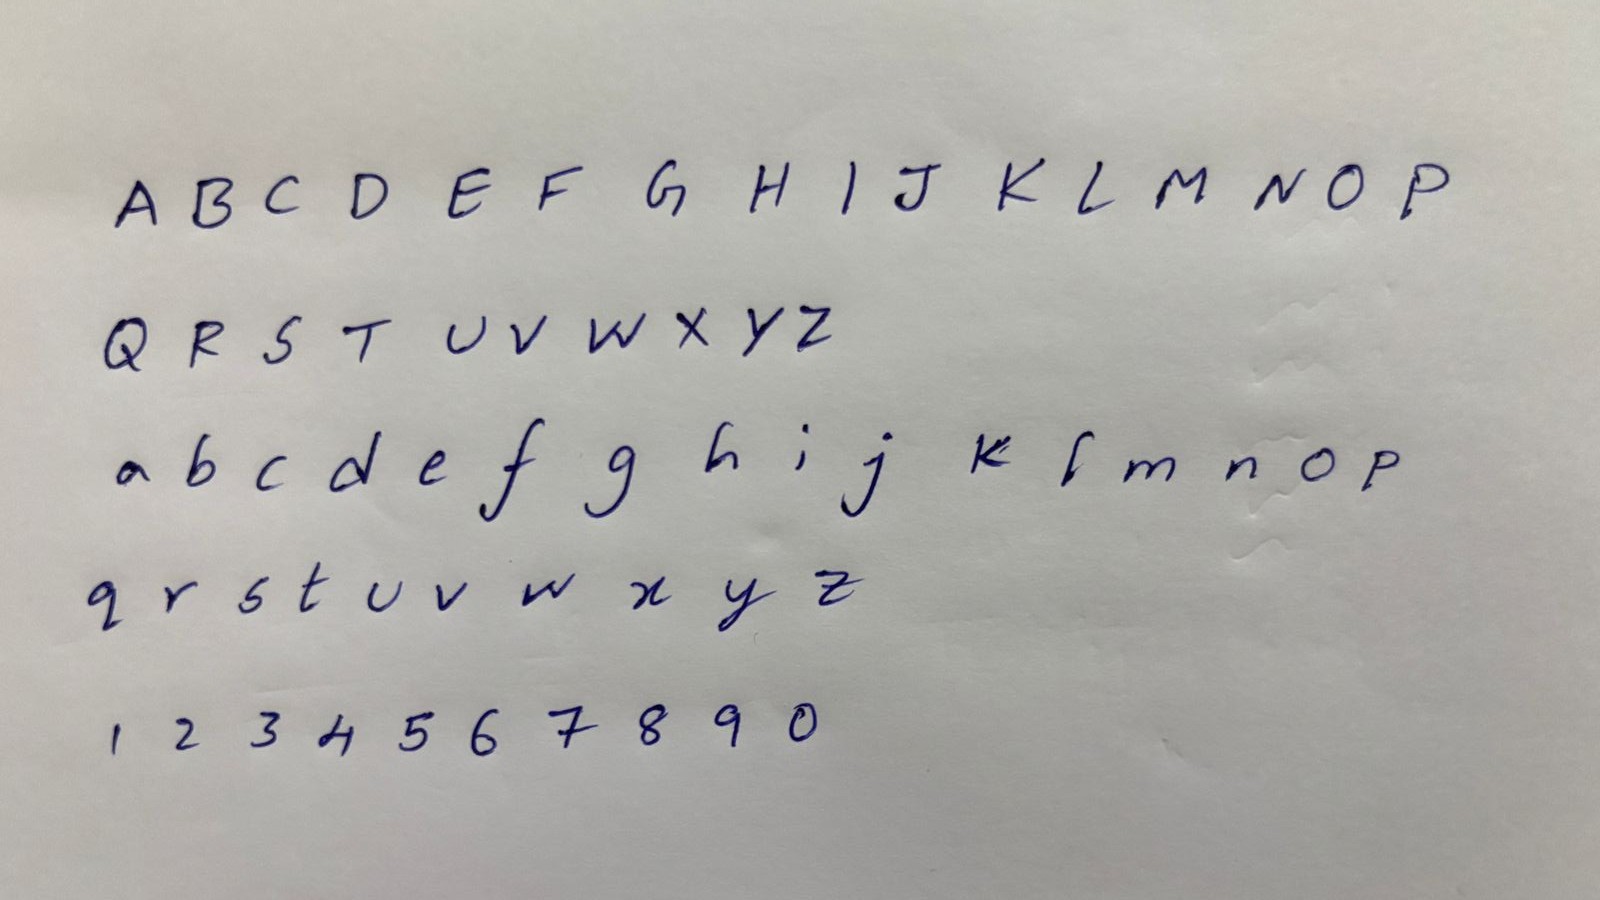 A B C D E F G H I J K L M N O P
Q R S T U V W X Y Z
a b c d e f g h i j k l m n o p
q r s t u v w x y z
1 2 3 4 5 6 7 8 9 0